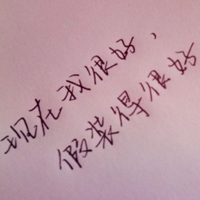 现在我很好，
假装得很好